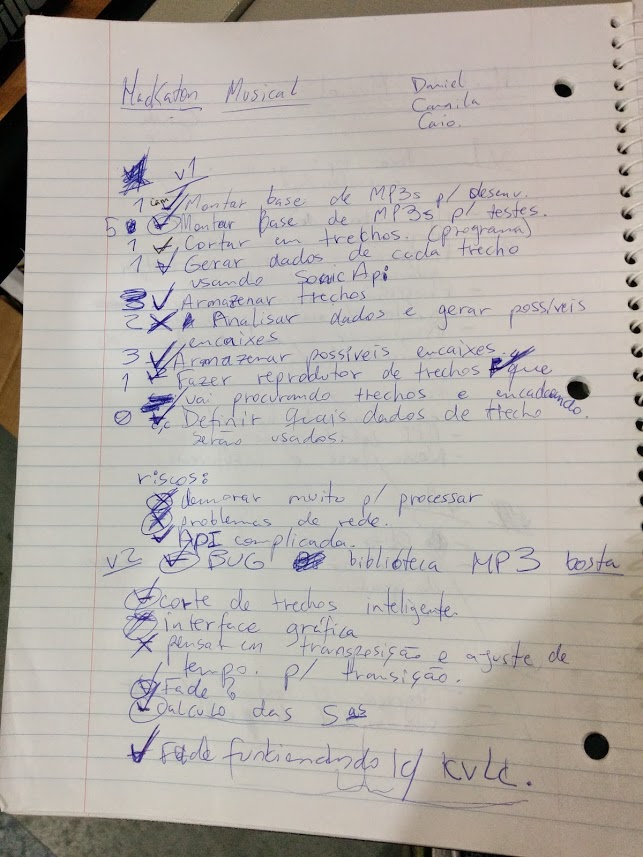 Hackaton Musical
Daniel
Camila
Caio.
v1
1 Montar base de MP3s p/ desenv.
5 Montar base de MP3s p/ testes.
1 Cortar em trechos. (programa)
1 Gerar dados de cada trecho
usando SonicApi
3 Armazenar trechos
2 Analisar dados e gerar possíveis
encaixes
3 Armazenar possíveis encaixes.
1 Fazer reprodutor de trechos que
vai procurando trechos e encadeando.
0 Definir quais dados de trecho
serão usados.
riscos:
demorar muito p/ processar
problemas de rede.
API complicada.
v2 BUG biblioteca MP3 bosta
corte de trechos inteligente.
interface gráfica
pensar em transposição e ajuste de
tempo. p/ transição.
Fade
Calculo das
Fade funcionando c/ KVLC.